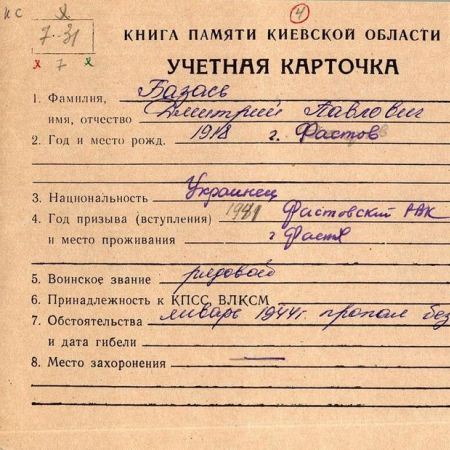 КС
4
7-31
7
КНИГА ПАМЯТИ КИЕВСКОЙ ОБЛАСТИ
УЧЕТНАЯ КАРТОЧКА
1. Фамилия, Базась
имя, отчество Дмитрий Павлович
2. Год и место рожд. 1918 г. Фастов
3. Национальность Украинец
4. Год призыва (вступления) 1941 Фастовский РВК
и место проживания г Фастов
5. Воинское звание рядовой
6. Принадлежность к КПСС ВЛКСМ
7. Обстоятельства январь 1944г. пропал без
и дата гибели
8. Место захоронения —